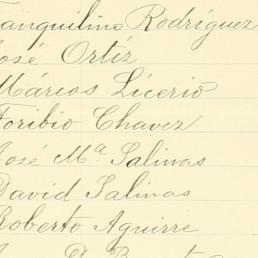 Tranquilino Rodríguez
José Ortíz
Márcos Licerio
Toribio Chavez
José Mª Salinas
David Salinas
Roberto Aguirre